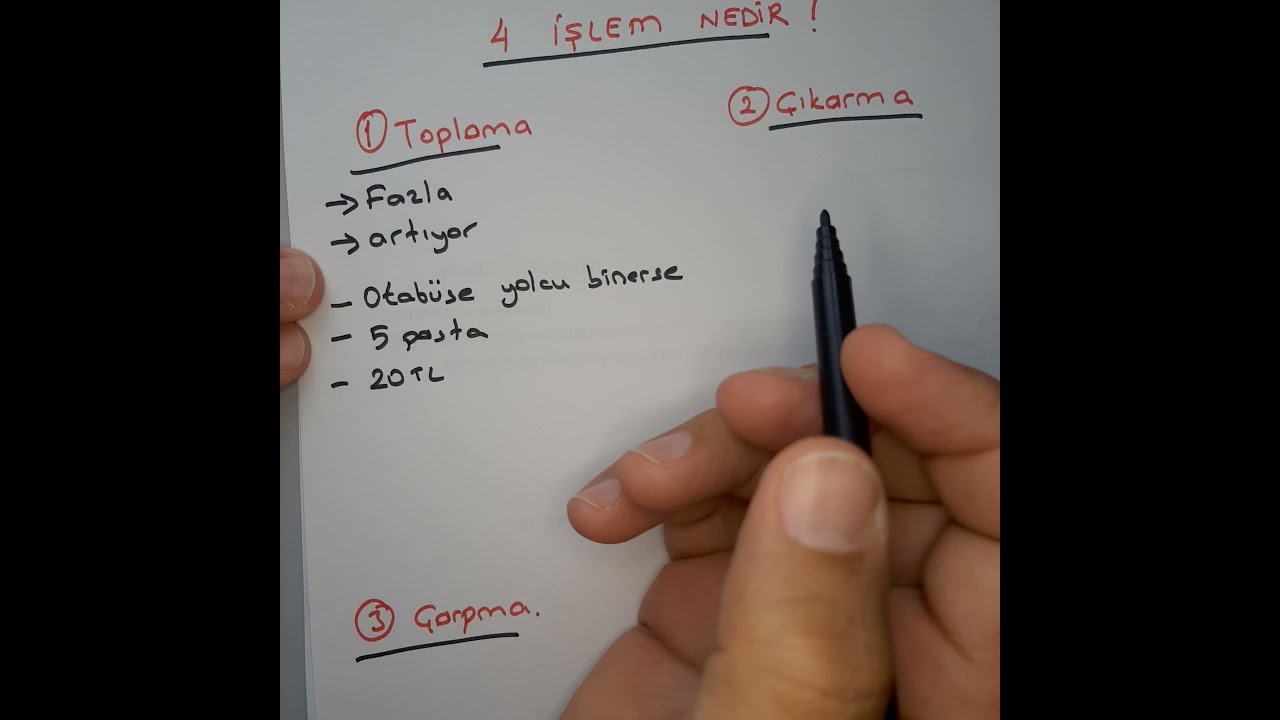 4 İŞLEM NEDİR !
① Toplama
→ Fazla
→ artıyor
- Otobüse yolcu binerse
- 5 pasta
- 20 TL
② Çıkarma
③ Çarpma.